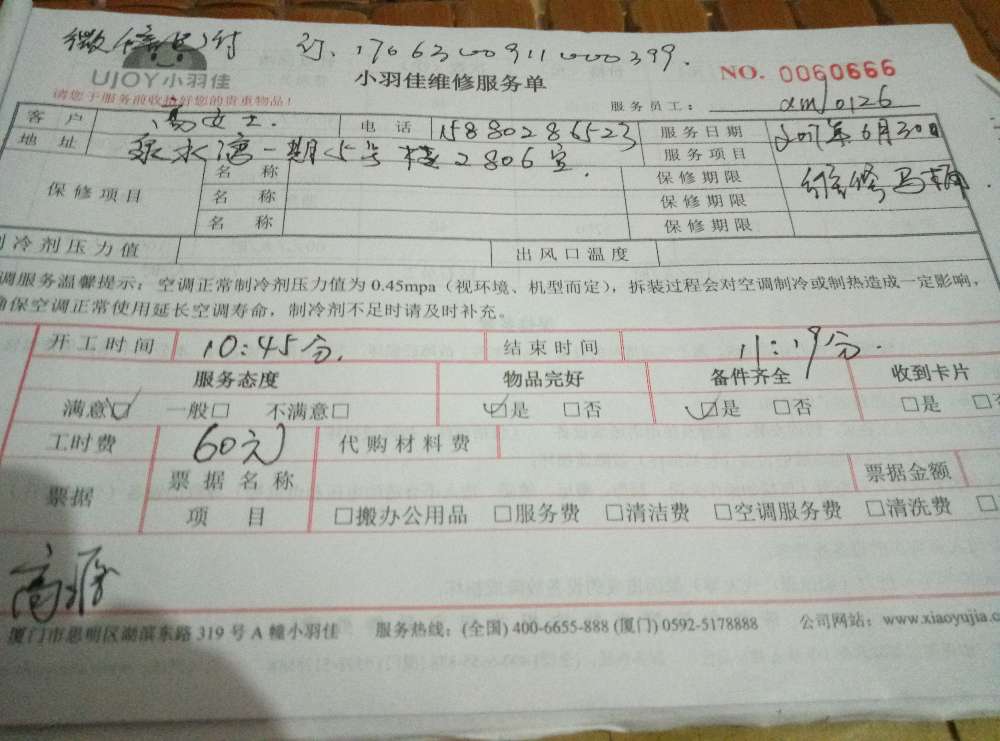 微信已付 订.17063000911000399.
UJOY小羽佳
小羽佳维修服务单
NO. 0060666
请您于服务前收拾好您的贵重物品！
服务员工： xm10126
客户 高女士. 电话 15880286523 服务日期 2017年6月30日
地址 一期5号楼2806室. 服务项目 维修马桶
保修项目 名称 保修期限
名称 保修期限
名称 保修期限
制冷剂压力值 出风口温度
调服务温馨提示：空调正常制冷剂压力值为 0.45mpa（视环境、机型而定），拆装过程会对空调制冷或制热造成一定影响，
确保空调正常使用延长空调寿命，制冷剂不足时请及时补充。
开工时间 10:45分. 结束时间 11:19分.
服务态度 物品完好 备件齐全 收到卡片
满意☑ 一般□ 不满意□ ☑是 □否 ☑是 □否 □是 □否
工时费 60元 代购材料费
票据 票据名称 票据金额
项目 □搬办公用品 □服务费 □清洁费 □空调服务费 □清洗费 □
高源
厦门市思明区湖滨东路 319 号 A 幢小羽佳 服务热线：(全国) 400-6655-888 (厦门) 0592-5178888 公司网站：www.xiaoyujia.c